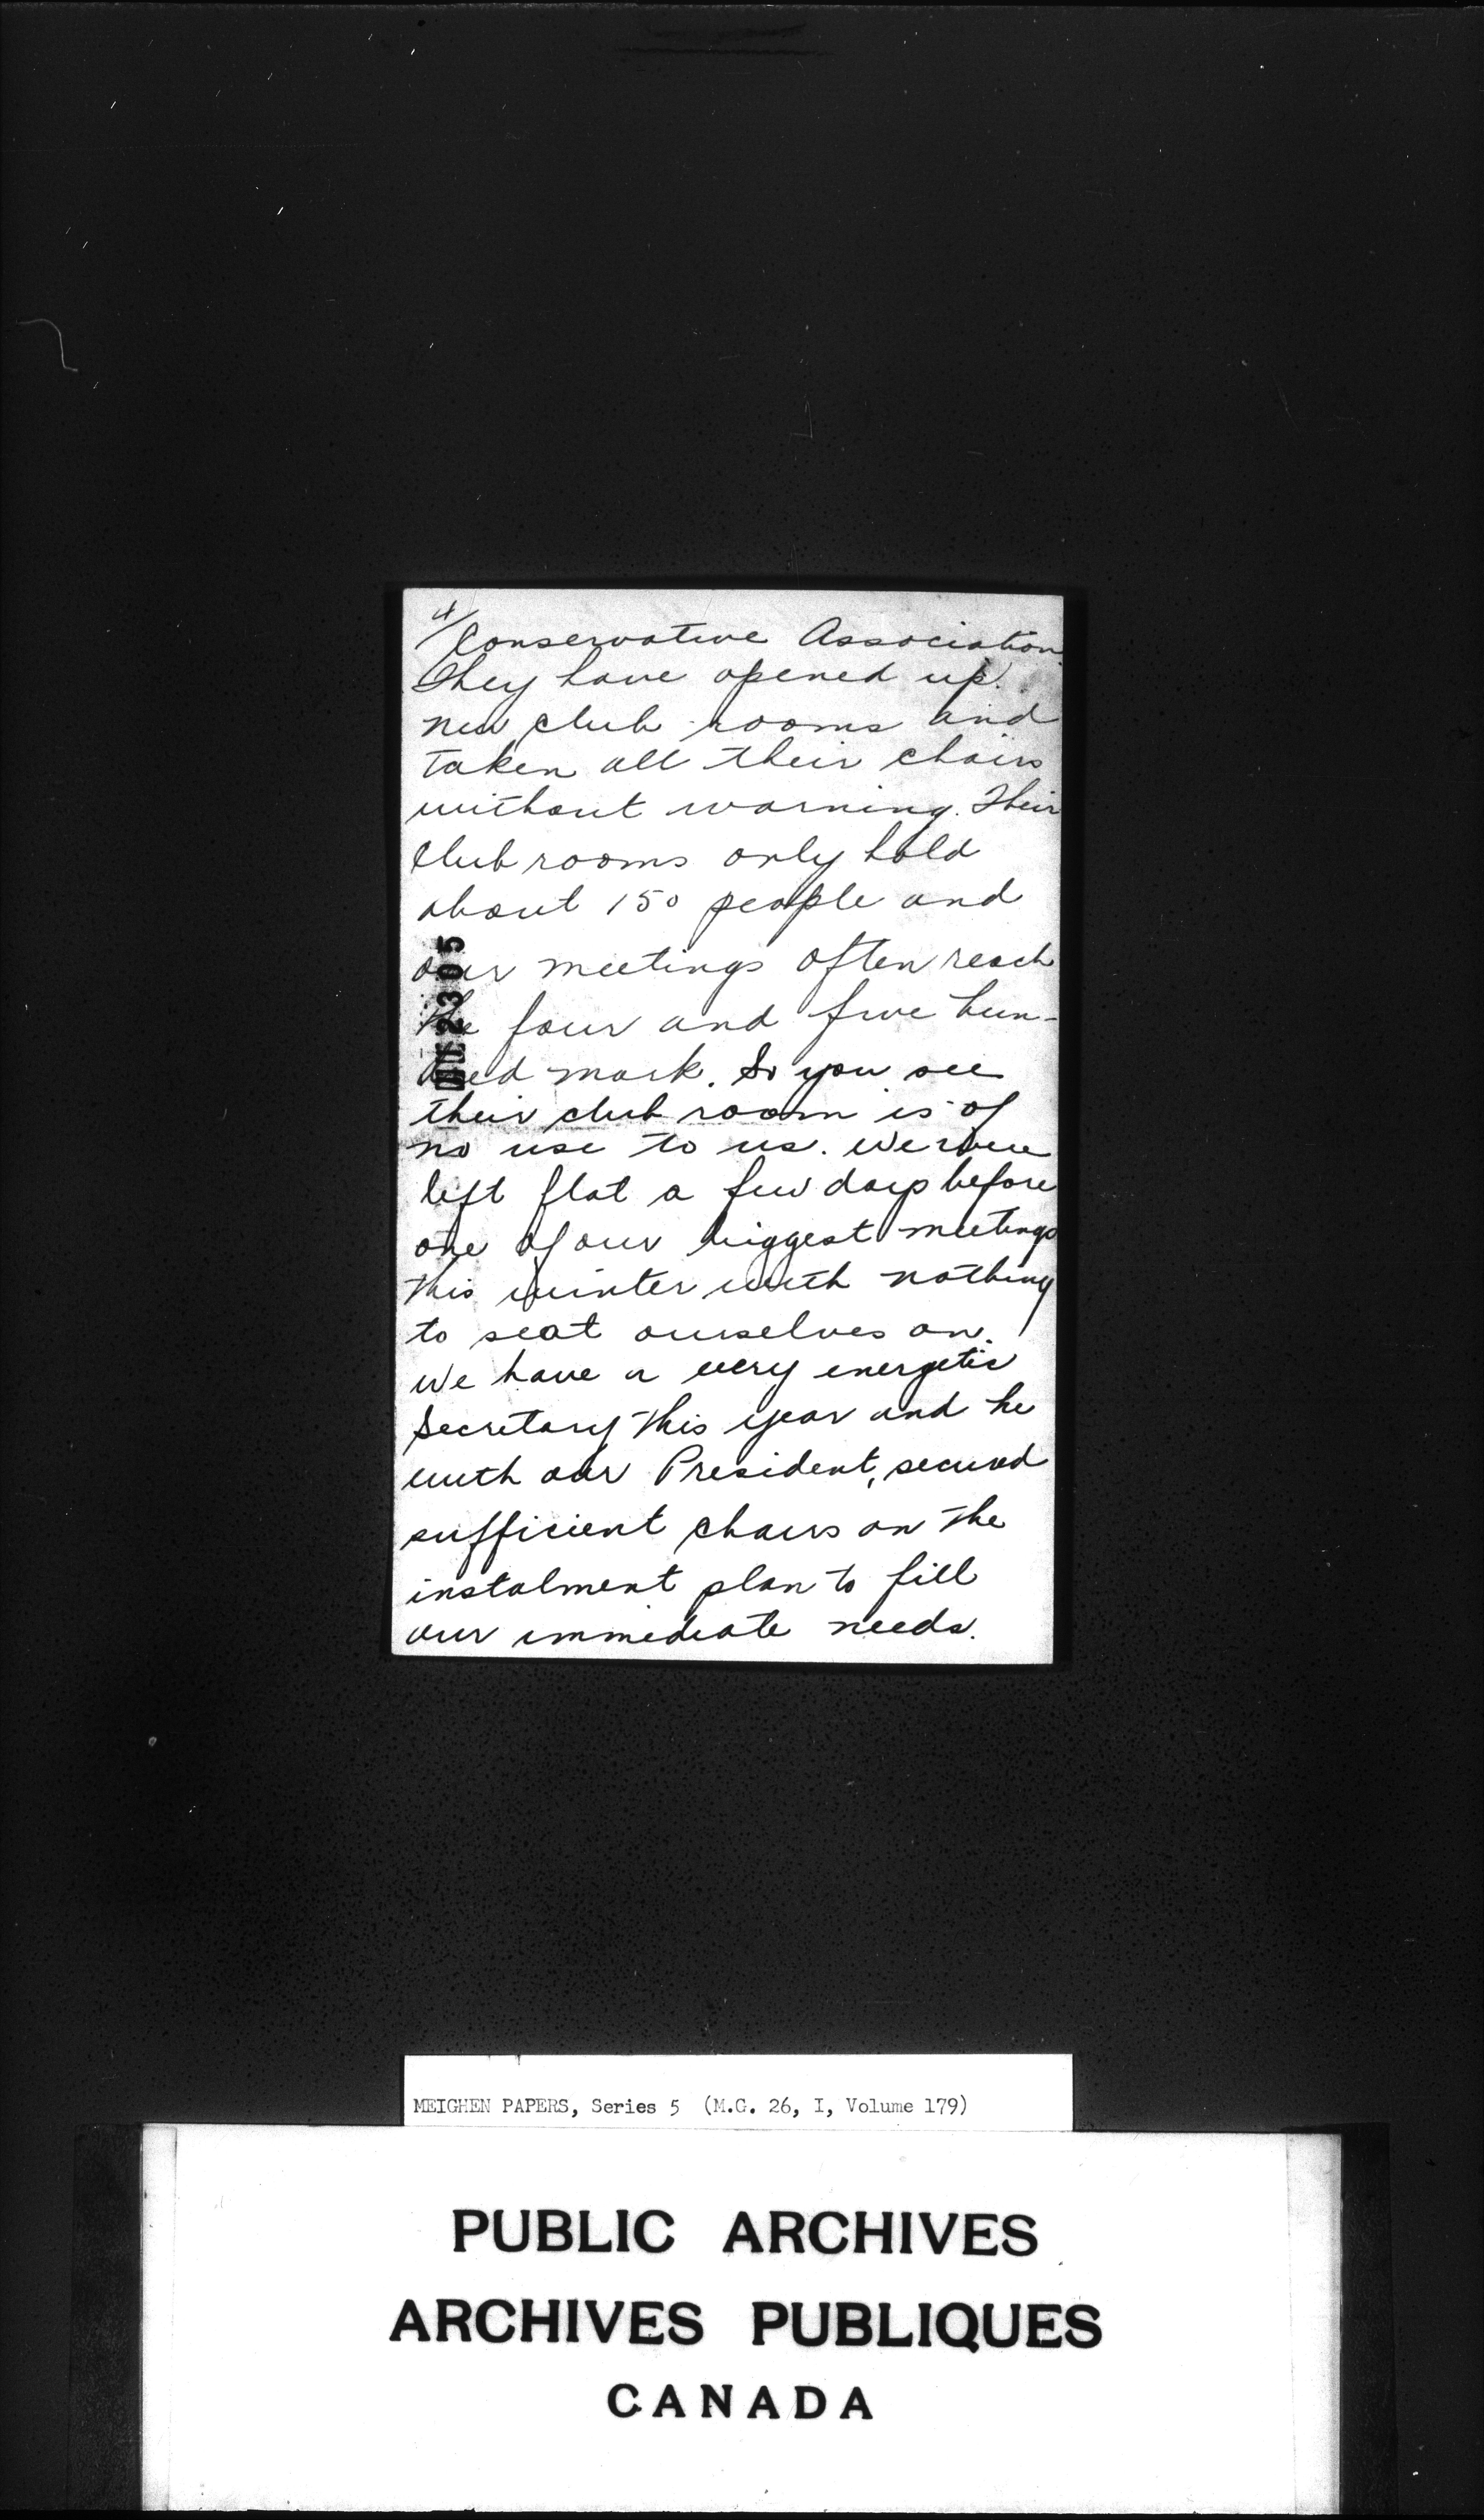 4/
Conservative Association.
They have opened up
new club rooms and
taken all their chairs
without warning. Their
club rooms only hold
about 150 people and
our meetings often reach
the four and five hun-
dred mark. So you see
their club room is of
no use to us. We were
left flat a few days before
one of our biggest meetings
this winter with nothing
to seat ourselves on.
We have a very energetic
Secretary this year and he
with our President, secured
sufficient chairs on the
instalment plan to fill
our immediate needs.
MEIGHEN PAPERS, Series 5 (M.G. 26, I, Volume 179)
PUBLIC ARCHIVES
ARCHIVES PUBLIQUES
CANADA